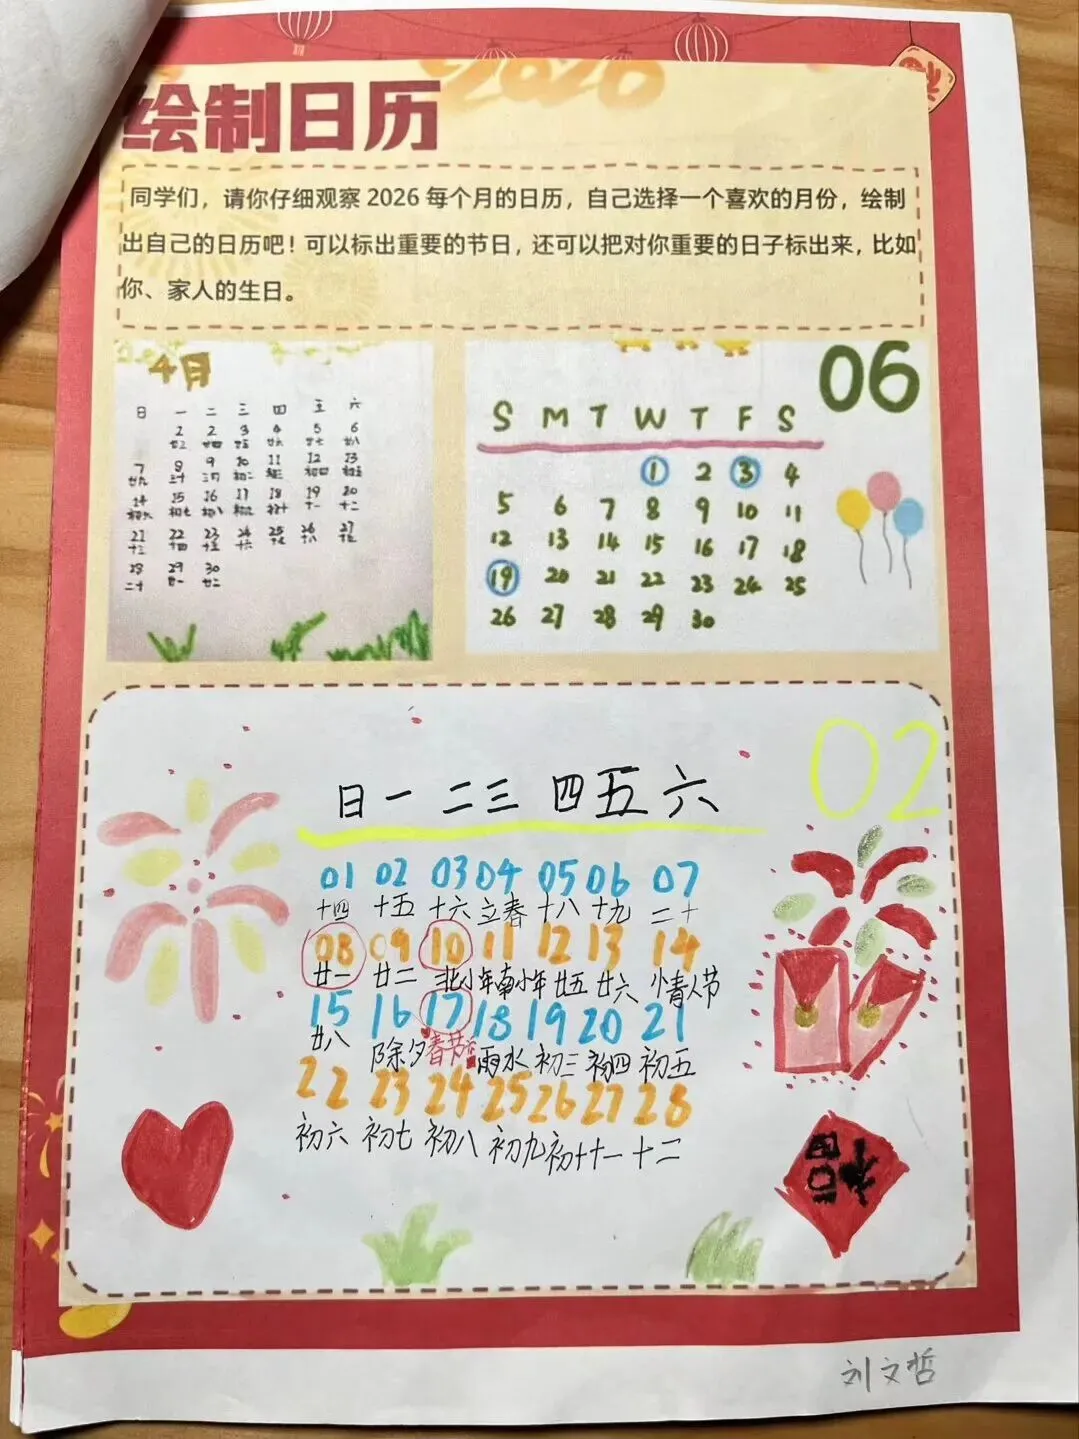 2026
绘制日历
同学们，请你仔细观察 2026 每个月的日历，自己选择一个喜欢的月份，绘制
出自己的日历吧！可以标出重要的节日，还可以把对你重要的日子标出来，比如
你、家人的生日。
4月
日 一 二 三 四 五 六
1 2 3 4 5 6
廿三 廿四 廿五 廿六 廿七 廿八
7 8 9 10 11 12 13
廿九 三十 初二 初三 初四 初五
14 15 16 17 18 19 20
初六 初七 初八 初九 初十 十一 十二
21 22 23 24 25 26 27
十三 十四 十五 十六 十七 十八 十九
28 29 30
二十 廿一 廿二
06
S M T W T F S
1 2 3 4
5 6 7 8 9 10 11
12 13 14 15 16 17 18
19 20 21 22 23 24 25
26 27 28 29 30
02
日 一 二 三 四 五 六
01 02 03 04 05 06 07
十四 十五 十六 立春 十八 十九 二十
08 09 10 11 12 13 14
廿一 廿二 北小年 南小年 廿五 廿六 情人节
15 16 17 18 19 20 21
廿八 除夕 春节 雨水 初三 初四 初五
22 23 24 25 26 27 28
初六 初七 初八 初九 初十 十一 十二
福
刘文哲